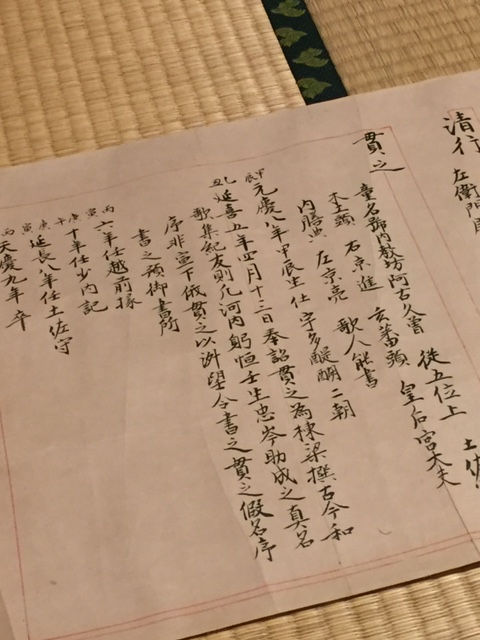 清行
左衛門
貫之
童名號内教坊阿古久曽 従五位上 土佐
木工頭 右京進 玄蕃頭 皇后宮大夫
内膳典 左京亮 歌人能書
甲辰 元慶八年甲辰生仕宇多醍醐二朝
乙丑 延喜五年四月十三日奉詔貫之為棟梁撰古今和
歌集紀友則凡河内躬恒壬生忠岑助成之真名
序非宣下依貫之以渕望令書之貫之假名序
書之預御書所
丙寅 六年任越前掾
十年任少内記
庚寅 延長八年任土佐守
天慶九年卒